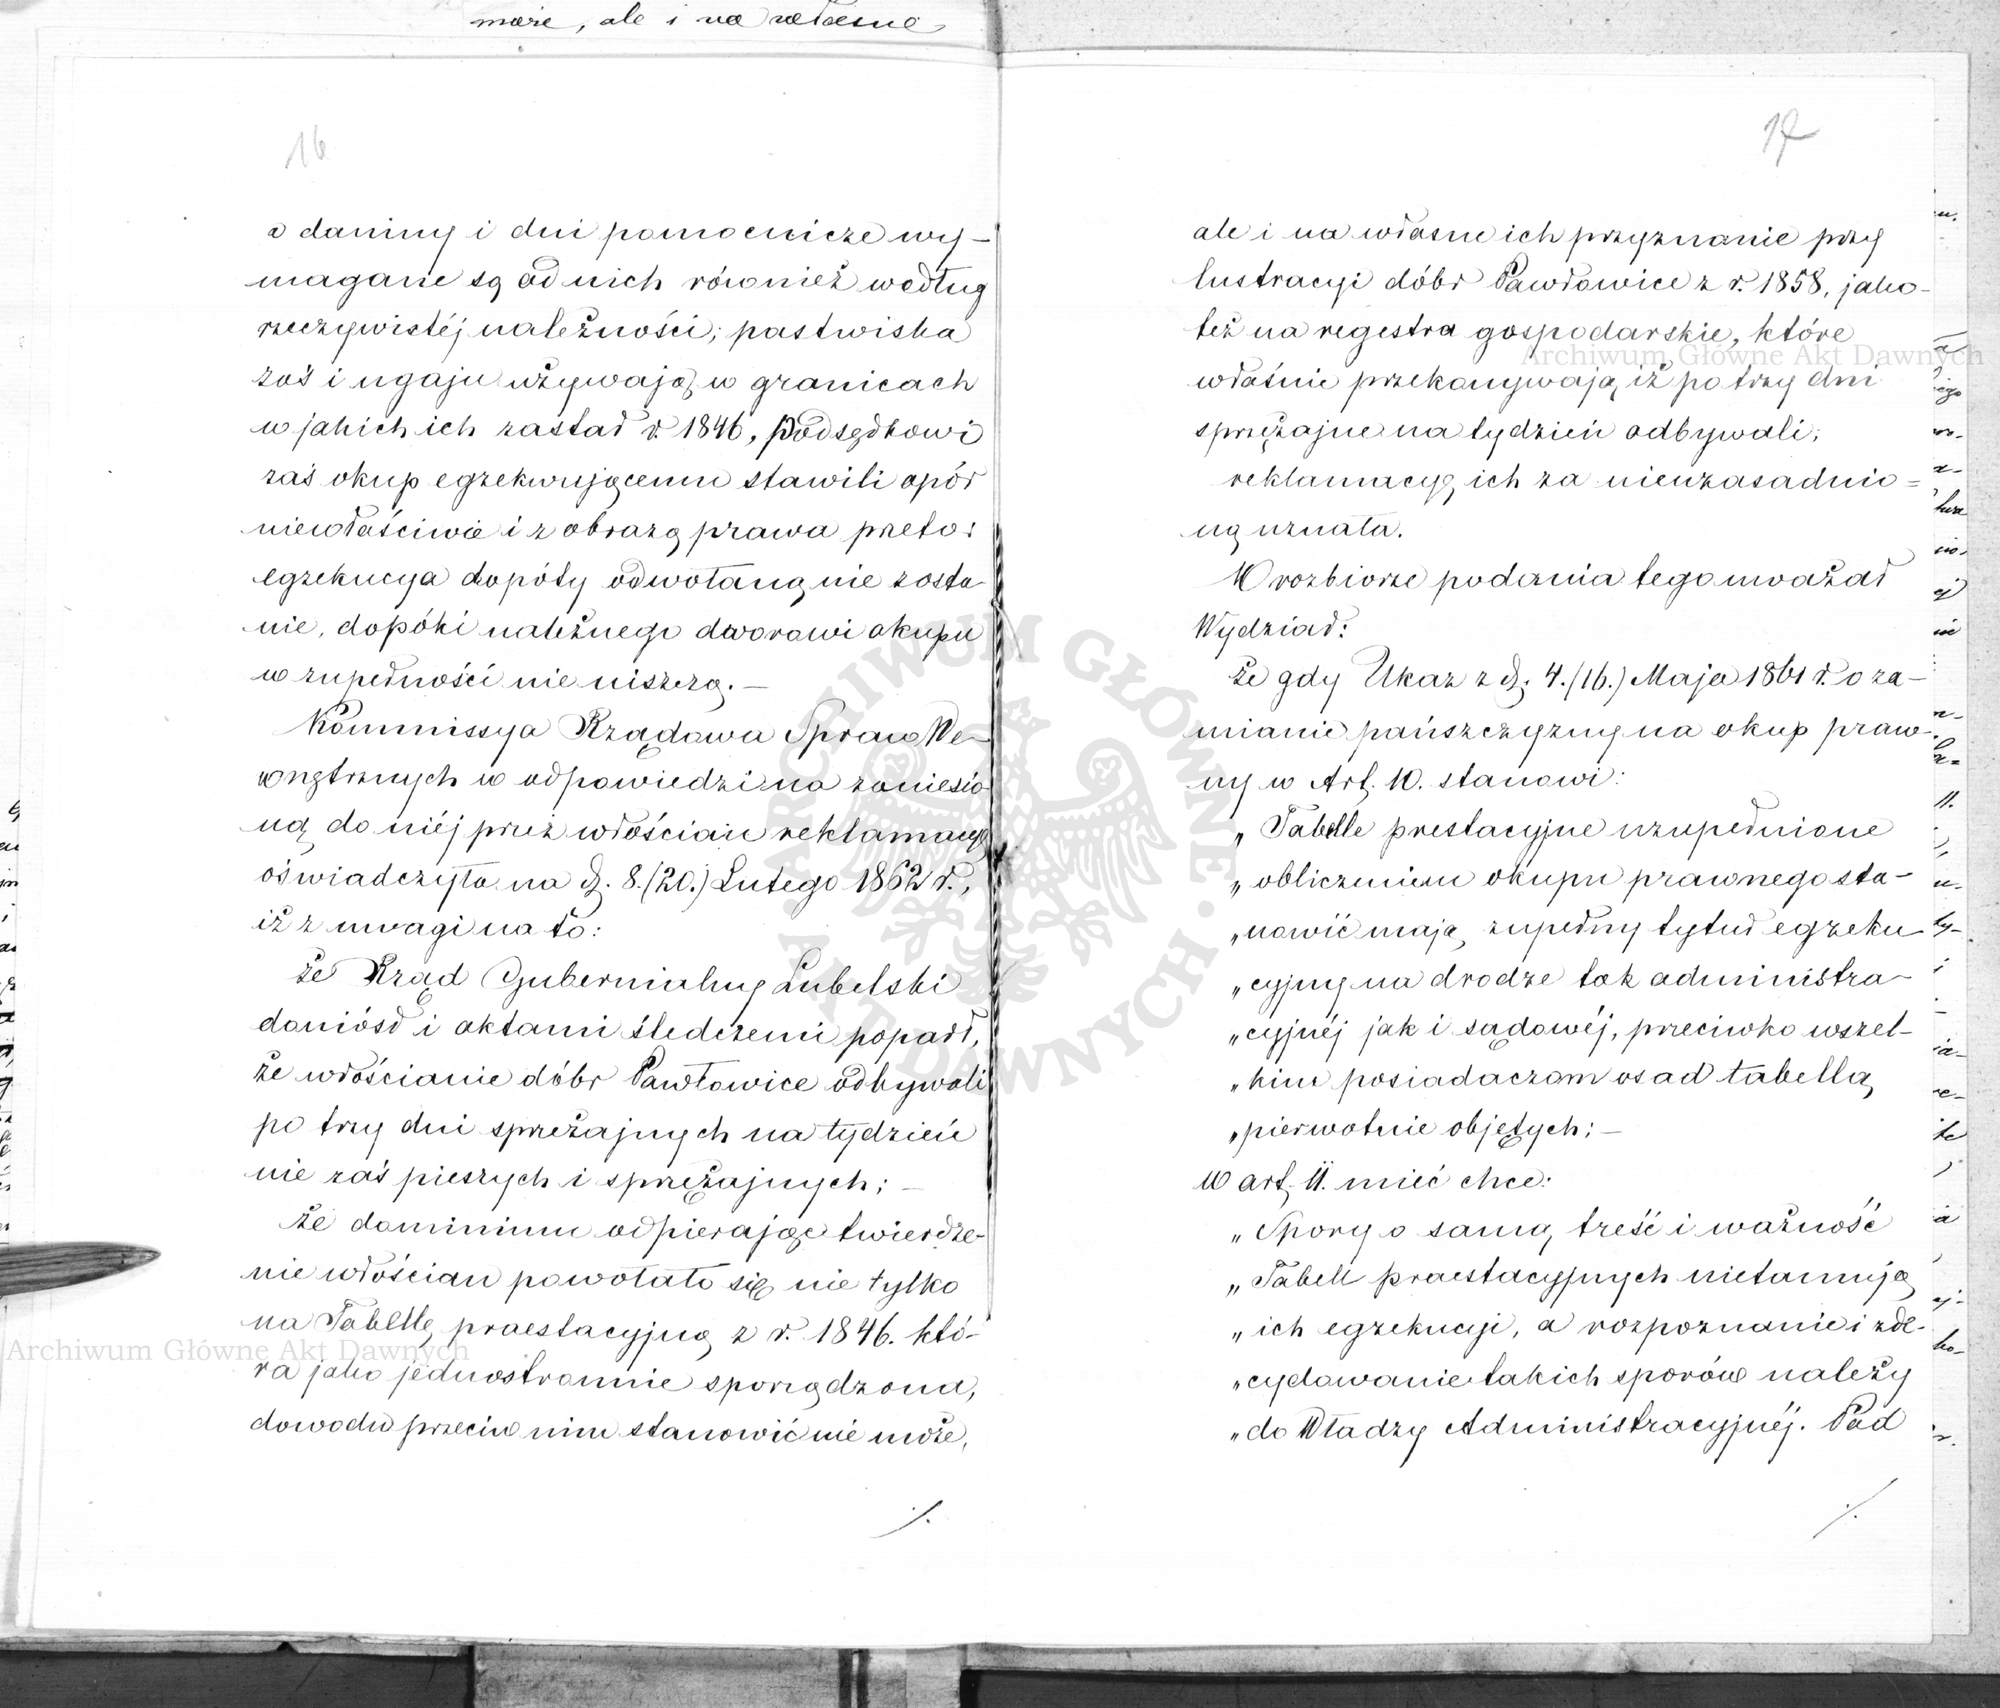 może, ale i na własne
16
a daniny i dni pomocnicze wy-
magane są od nich również według
rzeczywistéj należności; pastwiska
zaś i ugaju używają w granicach
w jakich ich zastał r. 1846, Podsędkowi
zaś okup egzekwującemu stawili opór
niewłaściwie i z obrazą prawa przeto:
egzekucya dopóty odwołaną nie zosta
nie, dopóki należnego dworowi okupu
w zupełności nie uiszczą.—
Kommissya Rządowa Spraw We-
wnętrznych w odpowiedzi na zaniesio
ną do niéj przez włościan reklamacyę
oświadczyła na d. 8./(20.) Lutego 1862 r.,
iż z uwagi na to:
że Rząd Gubernialny Lubelski
doniósł i aktami śledczemi poparł,
że włościanie dóbr Pawłowice odbywali
po trzy dni sprzężajnych na tydzień
nie zaś pieszych i sprzężajnych; —
że dominium odpierając twierdze-
nie włościan powołało się nie tylko
na Tabellę praestacyjną z r. 1846. któ-
ra jako jednostronnie sporządzona,
dowodu przeciw nim stanowić nie może,
./.
17
ale i na własne ich przyznanie przy
lustracyi dóbr Pawłowice z r. 1858, jako-
też na regestra gospodarskie, które
właśnie przekonywają, iż po trzy dni
sprzężajne na tydzień odbywali;
reklamacyę ich za nieuzasadnio=
ną uznała.
W rozbiorze podania tego uważał
Wydział:
że gdy Ukaz z d. 4./(16.) Maja 1861 r. o za-
mianie pańszczyzny na okup praw-
ny w Art. 10. stanowi:
„Tabelle prestacyjne uzupełnione
„obliczeniem okupu prawnego sta-
„nowić mają zupełny tytuł egzeku-
„cyjny na drodze tak administra-
„cyjnéj jak i sądowéj, przeciwko wszel-
„kim posiadaczom osad tabellą
„pierwotnie objętych; —
W art. 11. mieć chce:
„Spory o samą treść i ważność
„Tabell praestacyjnych nietamują
„ich egzekucyi, a rozpoznanie i zde-
„cydowanie takich sporów należy
„do Władzy Administracyjnéj. Pod
./.
Archiwum Główne Akt Dawnych
Archiwum Główne Akt Dawnych
ARCHIWUM GŁÓWNE AKT DAWNYCH